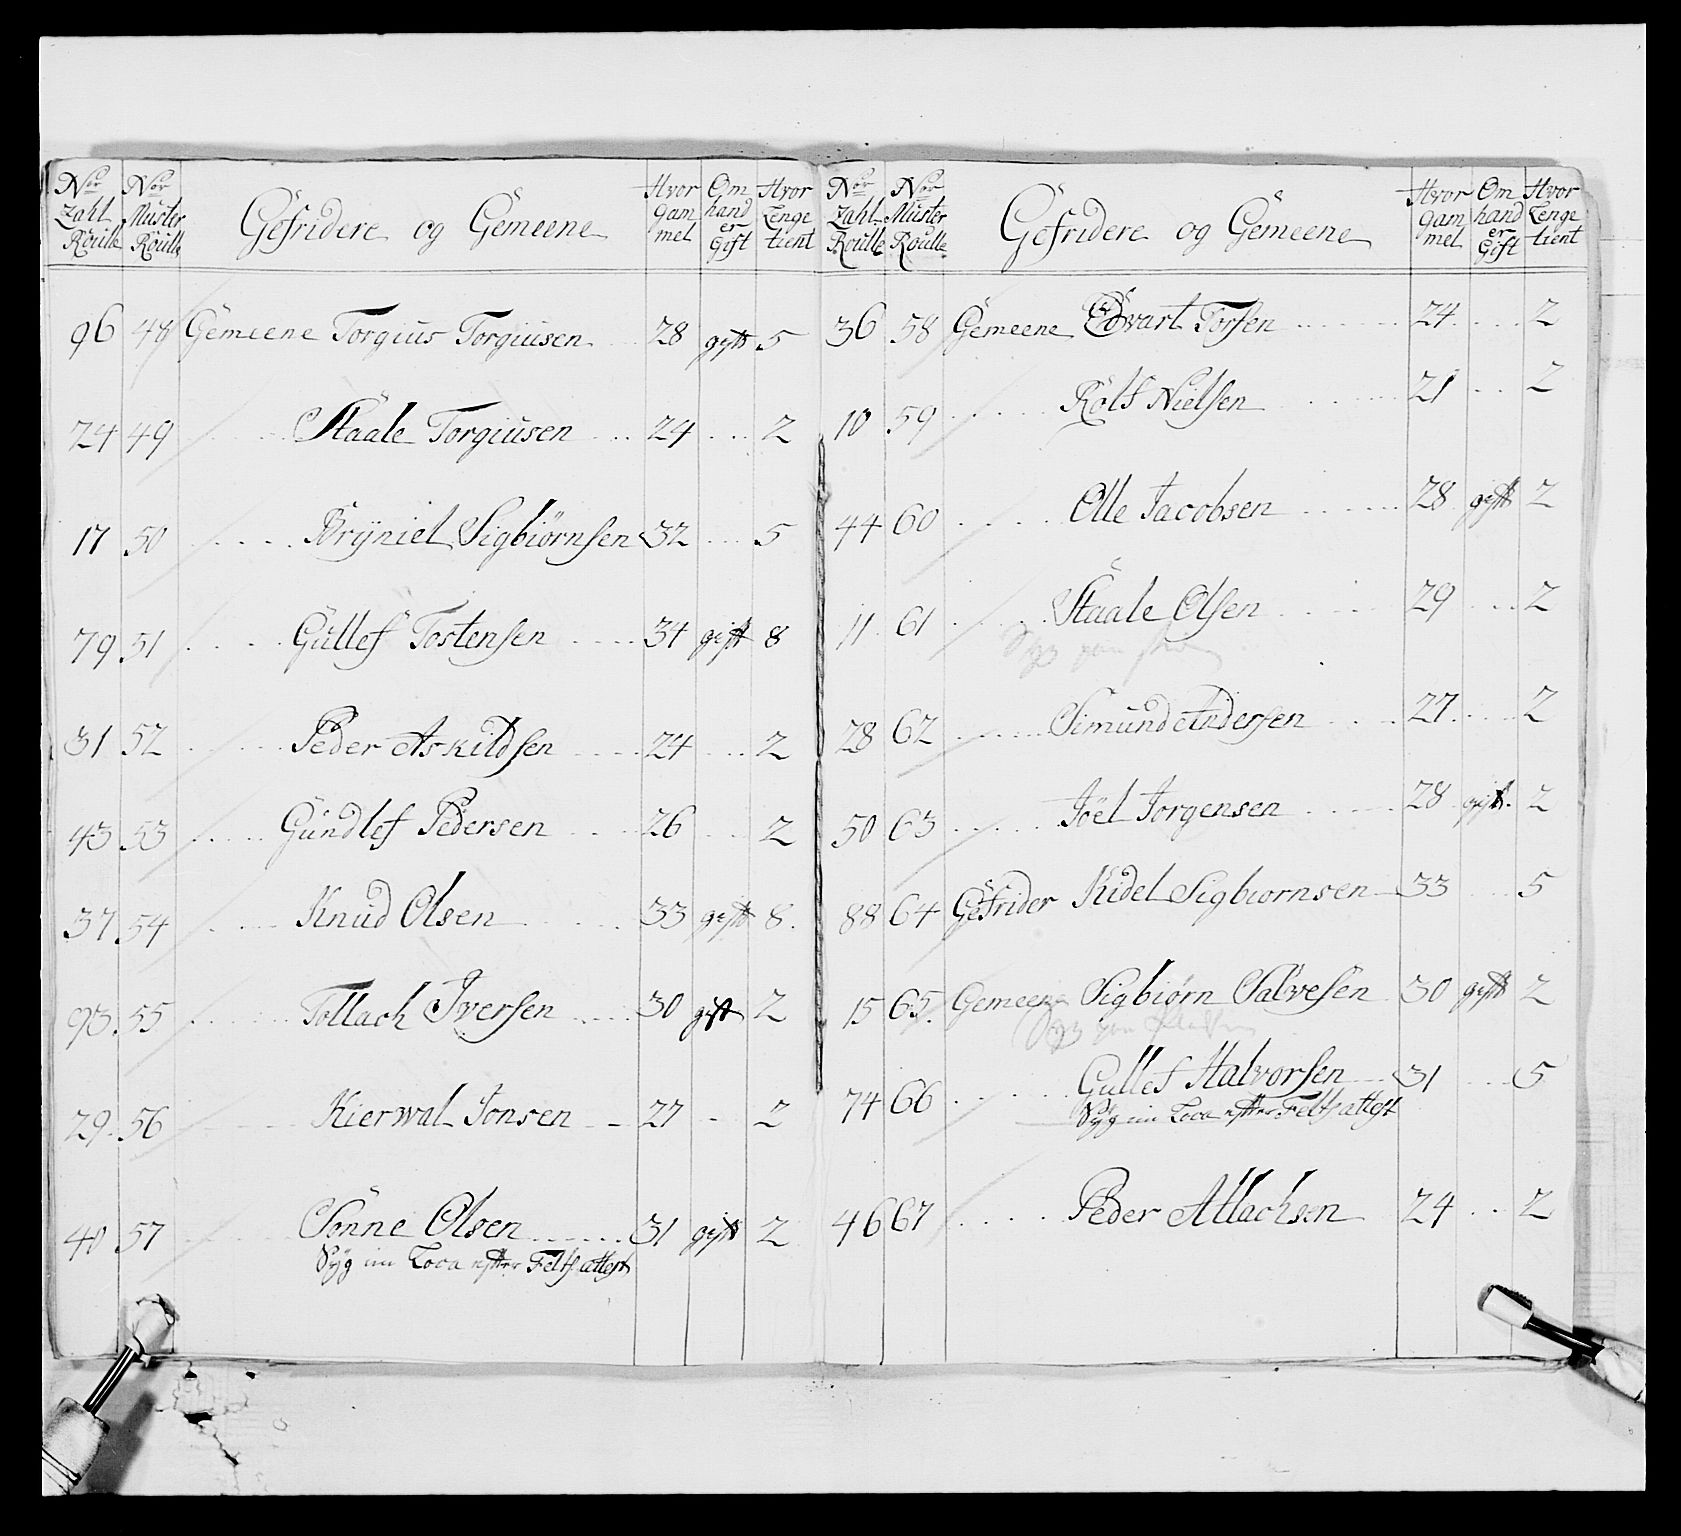 Nor Zahl Roulle | Nor Muster Roulle | Gefridere og Gemeene | Hvor gam mel | Om hand er Gift | Hvor Lenge tient
96 48 Gemeene Torgius Torgiusen 28 gift 5
24 49 Staale Torgiusen 24 2
17 50 Bryniel Sigbiörnsen 32 5
79 51 Gullef Tostensen 34 gift 8
31 52 Peder Askildsen 24 2
43 53 Gundlef Pedersen 26 2
37 54 Knud Olsen 33 gift 8
93 55 Tollach Iversen 30 gift 2
29 56 Kierwal Jonsen 27 2
40 57 Sönne Olsen 31 gift 2
Syg im Loca efter Feltsattest
Nor Zahl Roulle | Nor Muster Roulle | Gefridere og Gemeene | Hvor gam mel | Om hand er Gift | Hvor Lenge tient
36 58 Gemeene Edvart Torsen 24 2
10 59 Rolf Nielsen 21 2
44 60 Olle Jacobsen 28 gift 2
11 61 Staale Olsen 29 2
Syg paa
28 62 Simund Andersen 27 2
50 63 Joel Jorgensen 28 gift 2
88 64 Gefrider Kidel Sigbiornsen 33 5
15 65 Gemeene Sigbiørn Salvesen 30 gift 2
Syg paa
74 66 Gullef Halvorsen 31 5
Syg im Loca efter Feltsattest
46 67 Peder Atlachsen 24 2